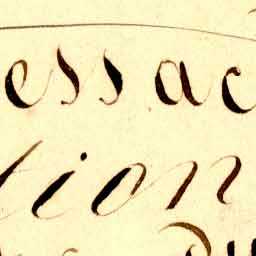 essac
tion